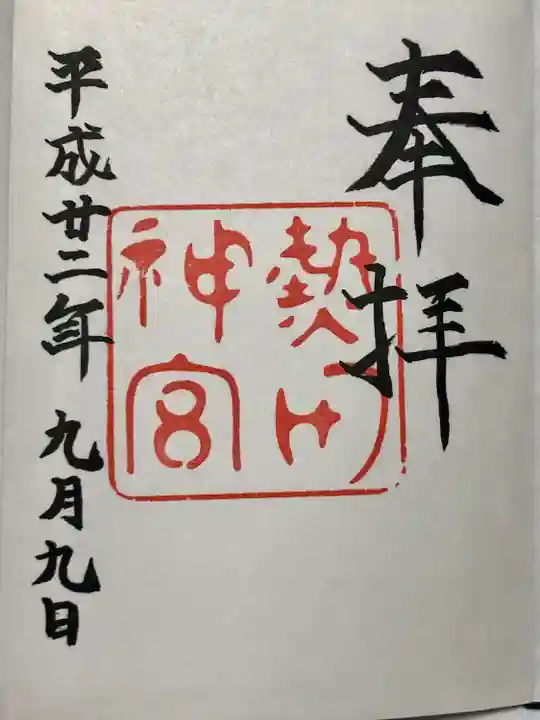 奉拝
熱田
神宮
平成廿二年九月九日